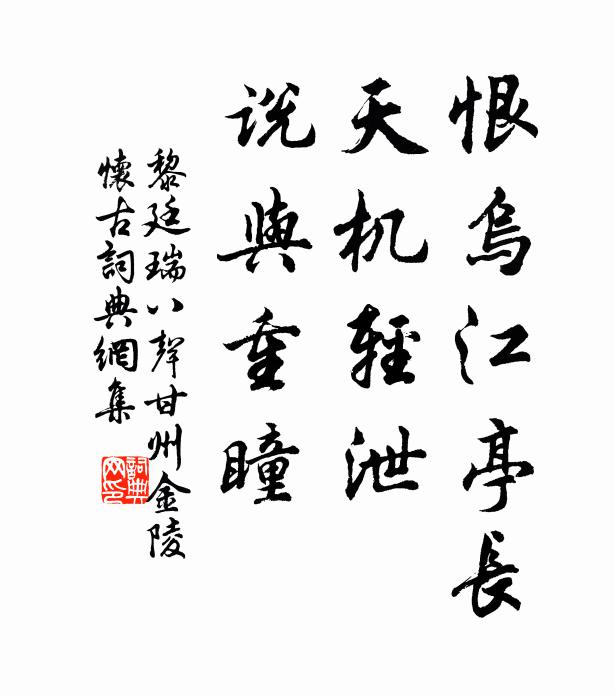 恨烏江亭長
天机輕泄
説與重瞳
黎廷瑞八聲甘州金陵
懷古詞典網集
詞典
网印